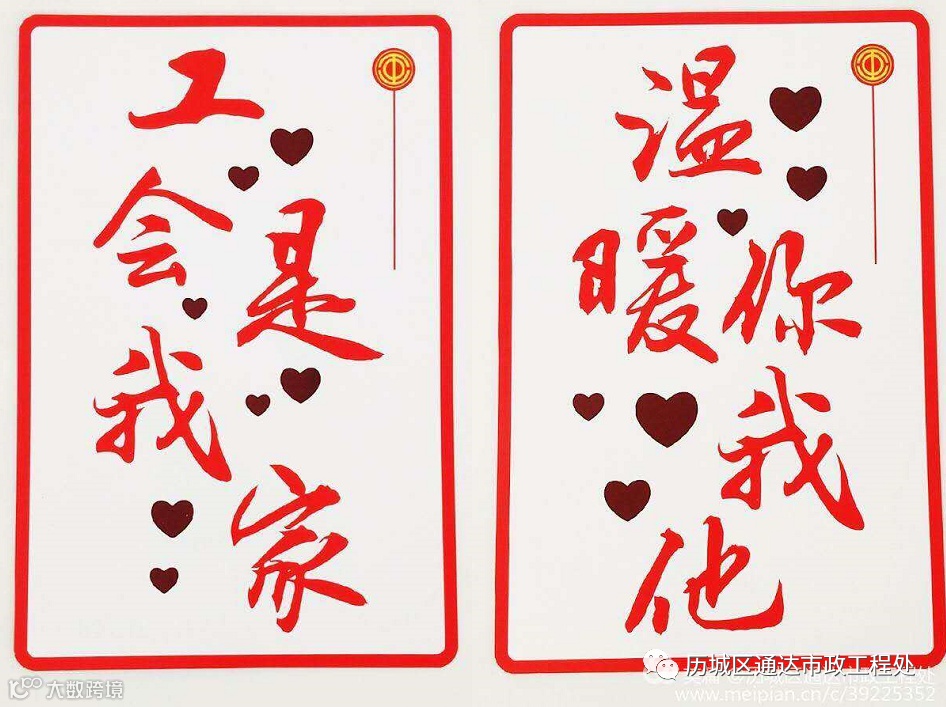 工会是我家
温暖你我他
历城区通达市政工程处
www.meipian.cn/c/39225352
大数跨境